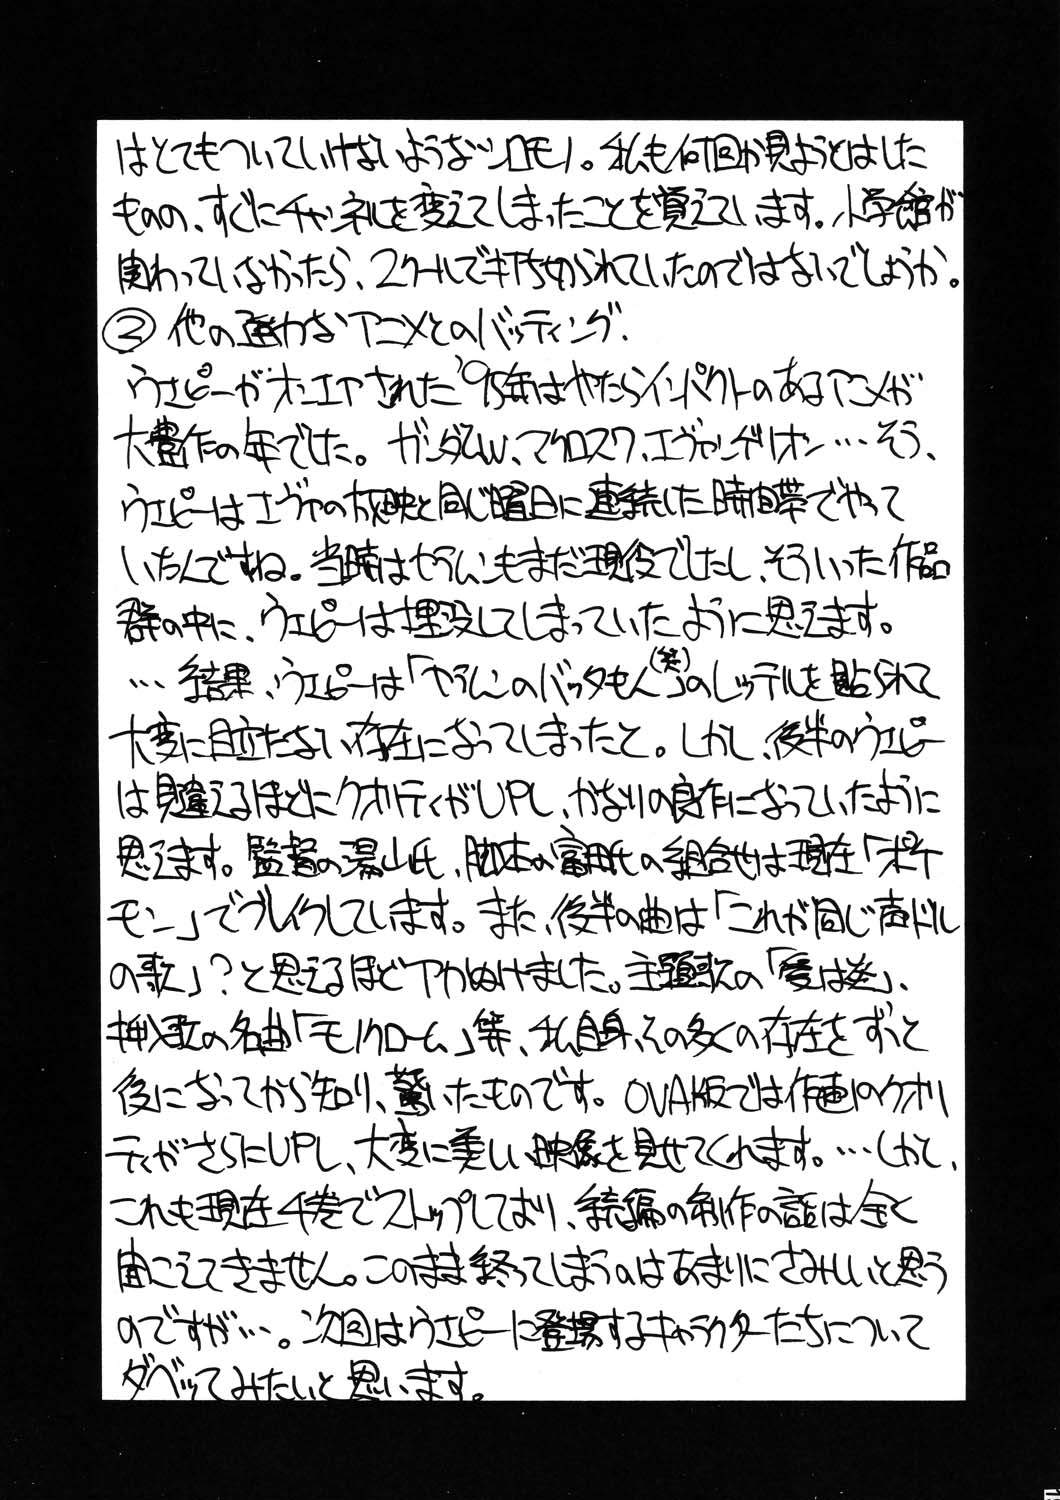 はとてもついていけないようなシロモノ。私も何回か見ようとはした
ものの、すぐにチャンネルを変えてしまったことを覚えています。小学館が
関わっていなかったら、2クールで打ち切られていたのではないでしょうか。
③ 他の強力なアニメとのバッティング.
ウエピーがオンエアされた'95年はやたらインパクトのあるアニメが
大豊作の年でした。ガンダムW、マクロス7、エヴァンゲリオン…そう、
ウエピーはエヴァの放映と同じ曜日に連続した時間帯でやって
いたんですね。当時はセラムンもまだ現役でしたし、そういった作品
群の中に、ウエピーは埋没してしまっていたように思えます。
…結果、ウエピーは「セラムンのバッタもん(笑)」のレッテルを貼られて
大変に目立たない存在になってしまったと。しかし、後半のウエピー
は見違えるほどにクオリティがUPし、かなりの良作になっていたように
思えます。監督の湯山氏、脚本の富田氏の組合せは現在「ポケ
モン」でブレイクしています。また、後半の曲は「これが同じ声ドル
の歌」?と思えるほどアカぬけました。主題歌の「愛は」、
挿入歌の名曲「モノクローム」等、私自身、その多くの存在をずっと
後になってから知り、驚いたものです。OVA版では作画のクオリ
ティがさらにUPし、大変に美しい映像を見せてくれます。…しかし、
これも現在4巻でストップしており、続編の制作の話は全く
聞こえてきません。このまま終ってしまうのはあまりにさみしいと思う
のですが…。次回はウエピーに登場するキャラクターたちについて
ダベッてみたいと思います。